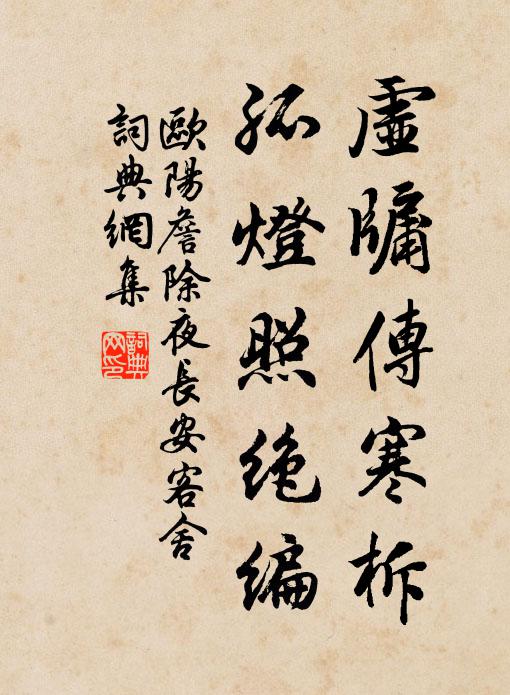 虛牖傳寒柝
孤燈照絶編
歐陽詹除夜長安客舍
詞典網集
詞典网印